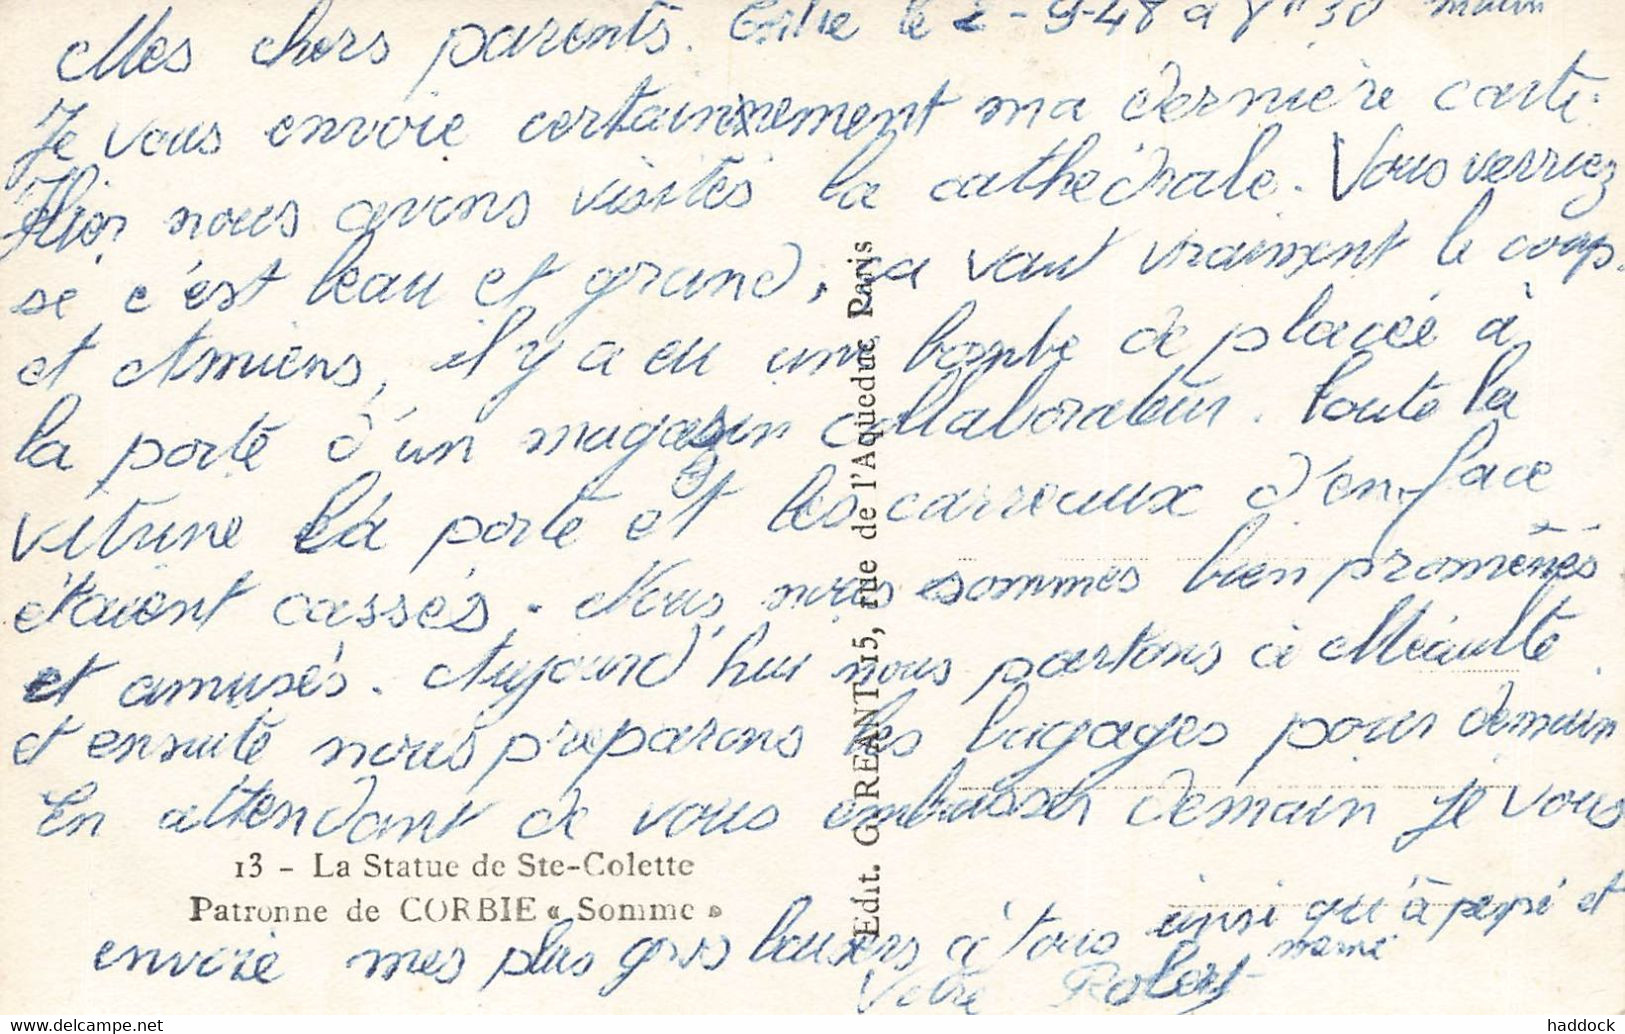 Mes chers parents. Corbie le 2-9-48 à 8h30 matin
Je vous envoie certainnement ma dernière carte.
Hier nous avons visités la cathédrale. Vous verriez
se c'est beau et grand, sa vaut vraiment le coup.
et Amiens, il y a eu une bombe de placée à
la porte d'un magasin collaborateur. Toute la
vitrine la porte et les carreaux d'en face
étaient cassés. Nous nous sommes bien promenés
et amusés. Aujourd'hui nous partons à Méaulte
et ensuite nous préparons les bagages pour demain
En attendant de vous embrasser demain je vous
13 - La Statue de Ste-Colette
Patronne de CORBIE « Somme »
envoie mes plus gros baisers à tous ainsi qu'à pépé et
mémé
Votre Robert
Edit. G. GREANT 15, rue de l'Aqueduc Paris
www.delcampe.net
haddock